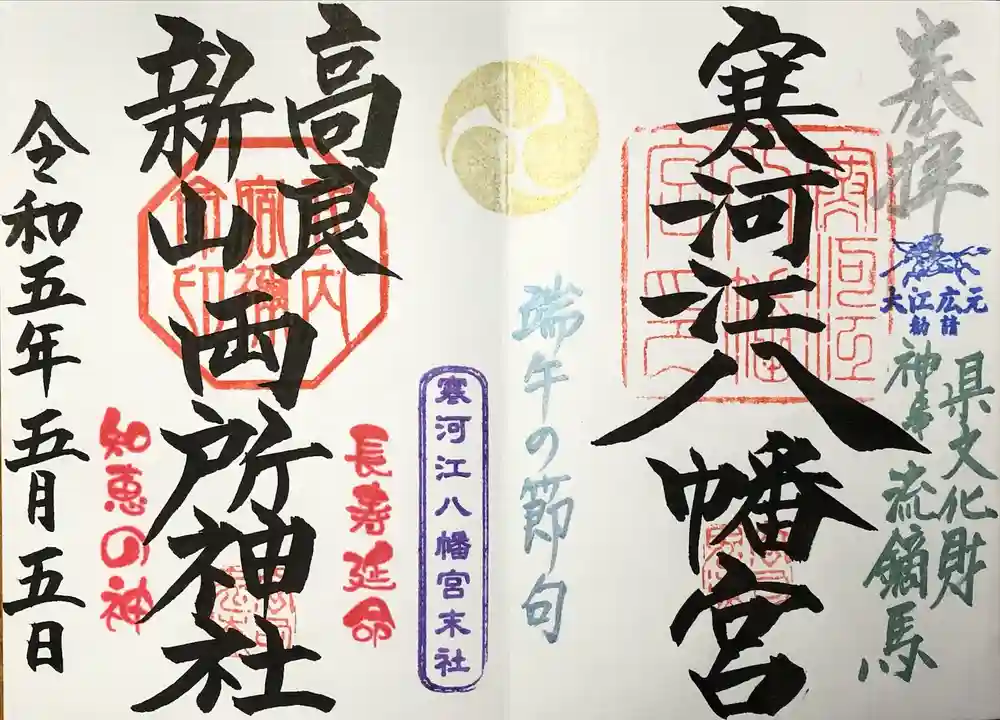 奉拝
大江広元
勧請
県文化財
神事 流鏑馬
寒河江八幡宮
端午の節句
寒河江八幡宮末社
長寿延命
高良
新山 両所神社
知恵の神
令和五年五月五日